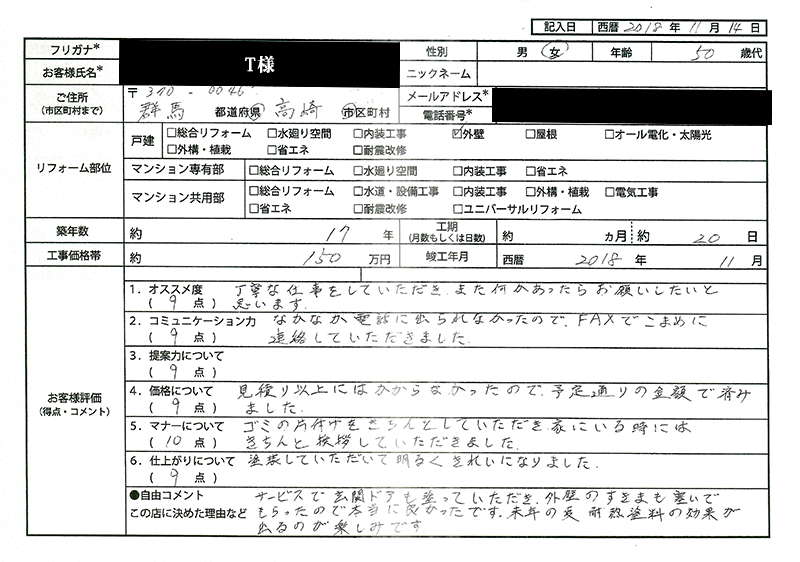 記入日 西暦 2018 年 11 月 14 日
フリガナ* 性別 男 女 年齢 50 歳代
お客様氏名* T様 ニックネーム
ご住所 (市区町村まで) 〒 370 - 0046 メールアドレス*
群馬 都道府県 高崎 市区町村 電話番号*
リフォーム部位
戸建 □総合リフォーム □水廻り空間 □内装工事 ☑外壁 □屋根 □オール電化・太陽光
□外構・植栽 □省エネ □耐震改修
マンション専有部 □総合リフォーム □水廻り空間 □内装工事 □省エネ
マンション共用部 □総合リフォーム □水道・設備工事 □内装工事 □外構・植栽 □電気工事
□省エネ □耐震改修 □ユニバーサルリフォーム
築年数 約 17 年 工期 (月数もしくは日数) 約 カ月 約 20 日
工事価格帯 約 150 万円 竣工年月 西暦 2018 年 11 月
お客様評価
(得点・コメント)
1. オススメ度 丁寧な仕事をしていただき、また何かあったらお願いしたいと
( 9 点 ) 思います。
2. コミュニケーション力 なかなか電話に出られなかったので、FAXでこまめに
( 9 点 ) 連絡していただきました。
3. 提案力について
( 9 点 )
4. 価格について 見積り以上にはかからなかったので、予定通りの金額で済み
( 9 点 ) ました。
5. マナーについて ゴミの片付けをきちんとしていただき家にいる時には
( 10 点 ) きちんと挨拶していただきました。
6. 仕上がりについて 塗装していただいて明るくきれいになりました。
( 9 点 )
●自由コメント サービスで玄関ドアも塗っていただき、外壁のすきまも塞いで
この店に決めた理由など もらったので本当に良かったです。来年の夏 耐熱塗料の効果が
出るのが楽しみです